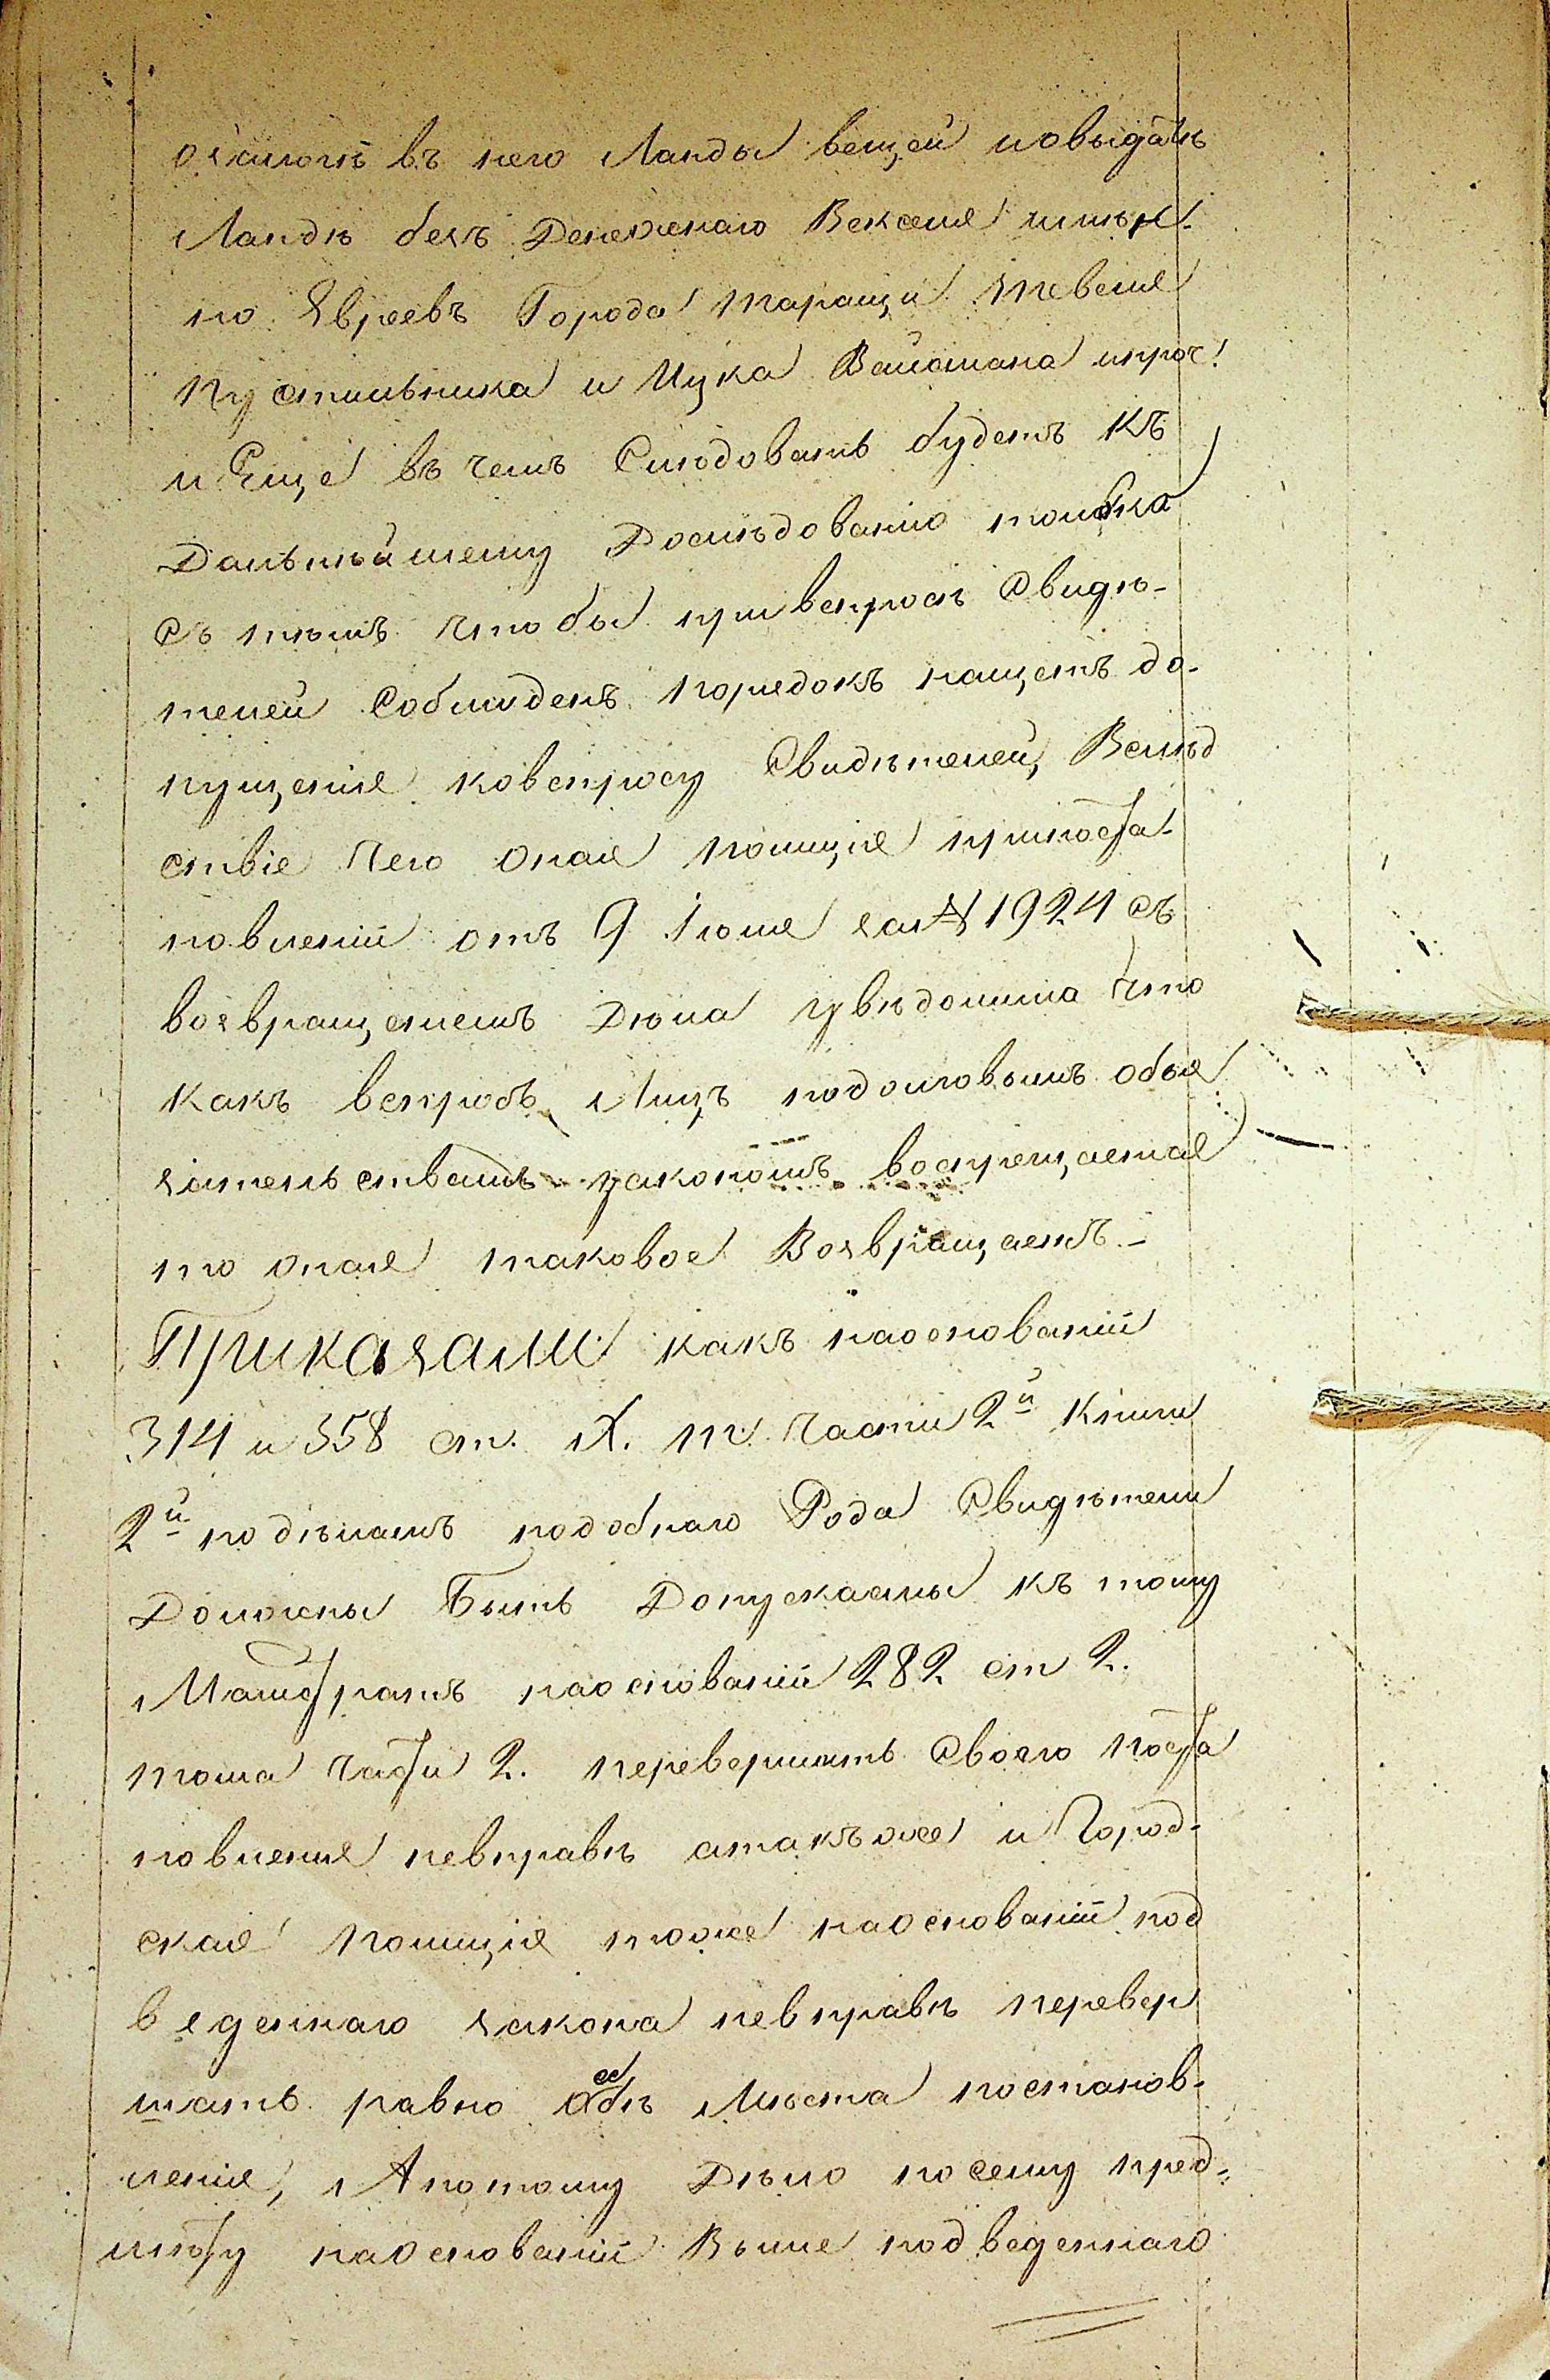 взятомъ въ него Ланды вещей иовыдачѣ
Ландѣ безъ Денежнаго Векселя имъ на
по Евреевъ Города Таращи Мевеля
Пустильника и Ицка Вайсмана ипроч:
и Еще въ чемъ Слѣдовать будетъ къ
Дальнѣйшему Дослѣдованію только
Съ тѣмъ чтобы привспросѣ Свидѣ-
телей Соблюденъ порядокъ нащетъ до-
пущенія ковспросу Свидѣтелей, Вслѣд
ствіе чего оная полиція припоста-
новленіи отъ 9 Іюля за№ 1924 съ
возвращенемъ Дѣла увѣдомила что
какъ вспросъ Лицъ подолговымъ обяа
зательствамъ закономъ воспрещается
то оная таковое Возвращаетъ.-
Приказали какъ наоснованіи
314 и 358 ст. X. т. части 2й Книги
2й подѣламъ подобнаго Рода Свидѣтели
Должны Быть Допускаемы къ тому
Магистратъ наоснованіи 282 ст 2.
тома части 2. перевершить Своего поста
новленія невправѣ атакъже и Город-
ская полиція тоже наоснованіи под
веденнаго закона невправѣ перевер
шать равно обѣ Мѣста постанов-
ленія, Апотому Дѣло посему пред-
мѣту наоснованіи Выше подведеннаго